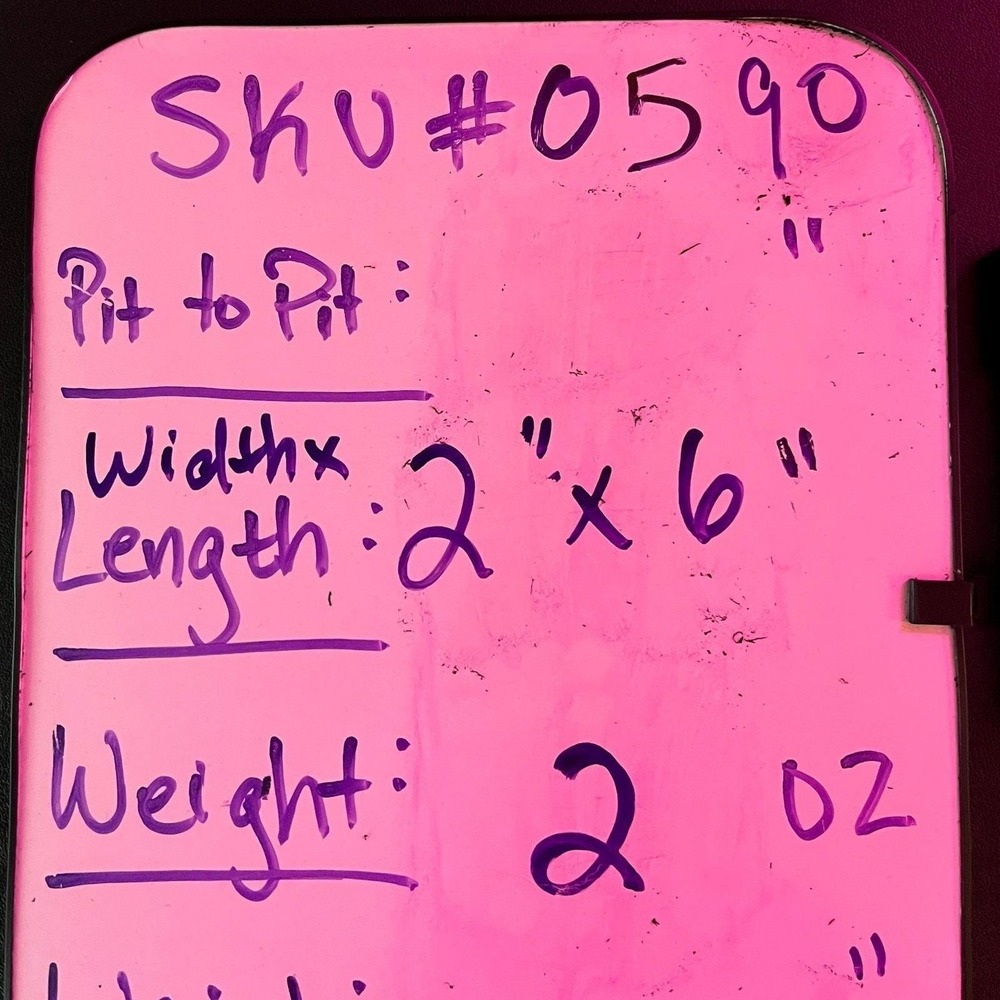 SKU #0590
Pit to Pit: "
Width x
Length: 2" x 6"
Weight: 2 oz
"